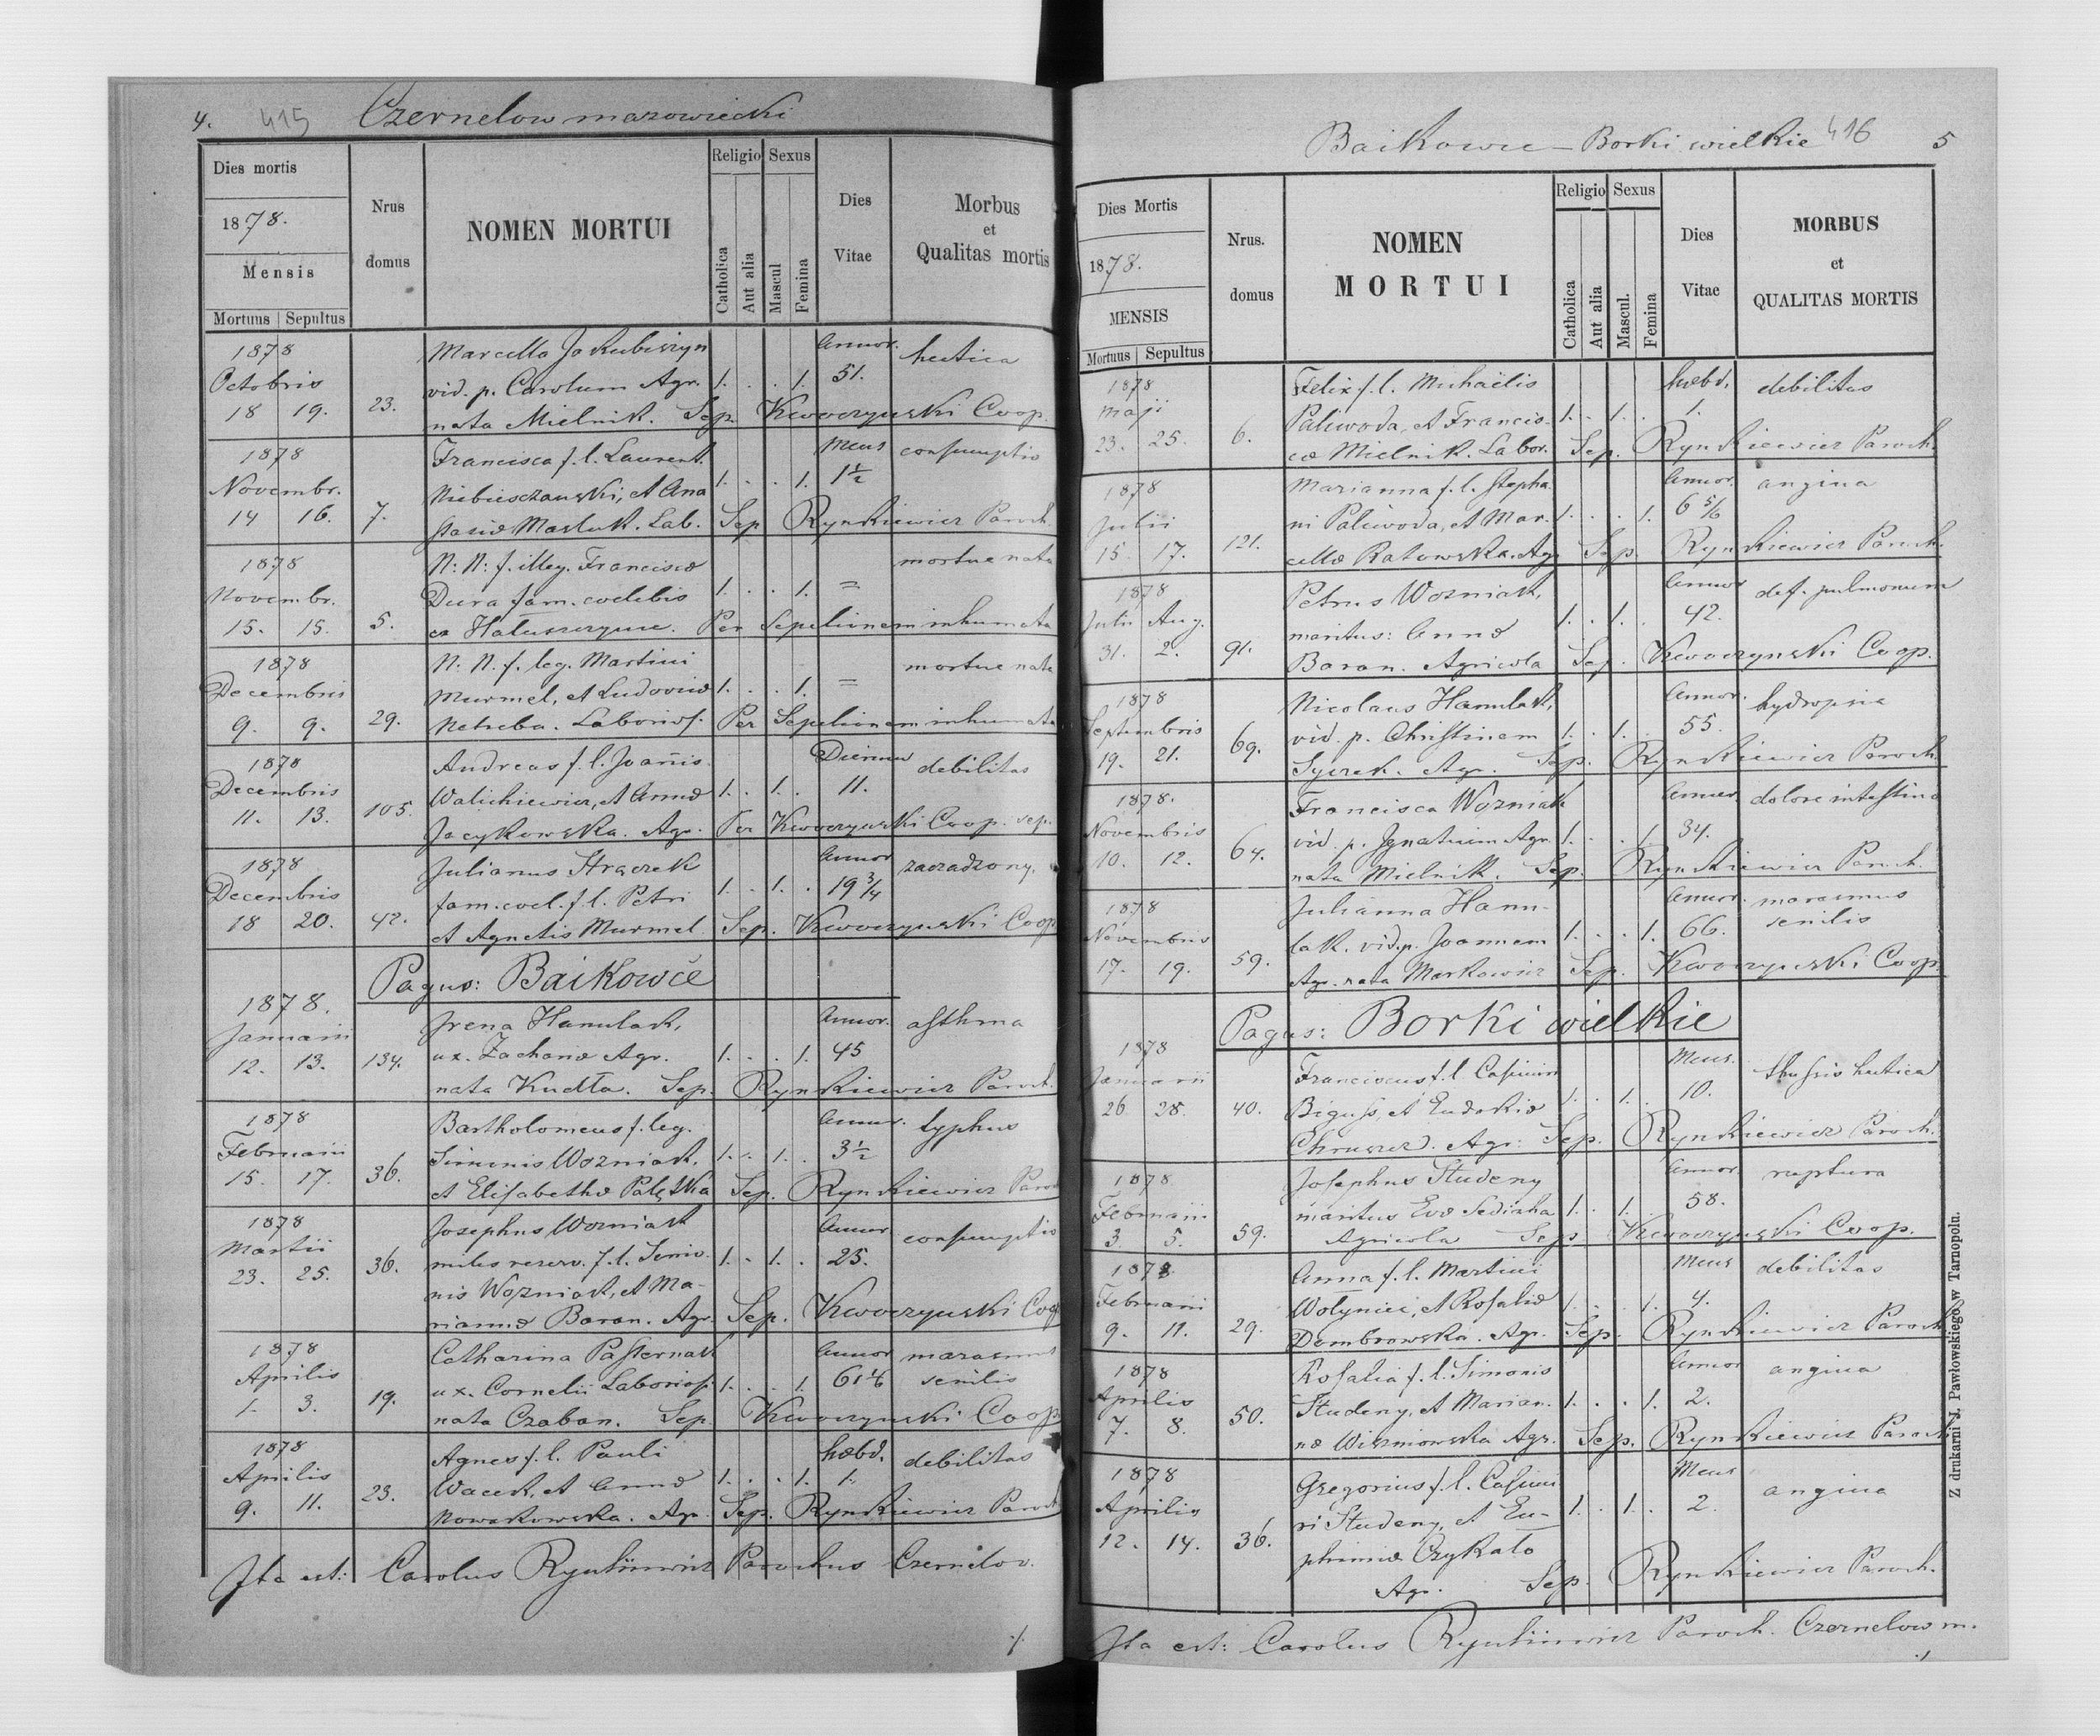 4. 415 Czernelow mazowiecki
Dies mortis
1878.
Mensis
Mortuus Sepultus
Nrus
domus
NOMEN MORTUI
Religio Sexus
Catholica
Aut alia
Mascul
Femina
Dies
Vitae
Morbus
et
Qualitas mortis
1878 Marcella Jakubiszyn Annor. hectica
Octobris vid. p. Carolum Agr. 1. . . 1. 51.
18 19. 23. nata Mielnik. Sep. Kwoczynski Coop.
1878 Francisca f. l. Laurent. Mens consumptio
Novembr. Niebieszczanski, et Ana 1. . . 1. 1½
14 16. 7. stasiæ Masluk. Lab. Sep Rynkiewicz Paroch.
1878 N: N: f. illeg. Franciscæ mortue nata
Novembr. Dura fam. coelebis 1. . . 1. =
15. 15. 5. ex Hałuszczynce. Per Sepelionem inhumata
1878 N. N. f. leg. Martini mortue nata
Decembris Murmel, et Ludovicæ 1. . . 1. =
9. 9. 29. Netreba. Laborios. Per Sepelionem inhumata
1878 Andreas f. l. Joañis Dierum debilitas
Decembris Walichiewicz, et Annæ 1. . 1. . 11.
11. 13. 105. Jacykowska. Agr. Per Kwoczynski Coop. sep.
1878 Julianus Hraczek Annor zaczadzony.
Decembris fam. coel. f. l. Petri 1. . 1. . 19¾
18 20. 42. et Agnetis Murmel. Sep. Kwoczynski Coop
Pagus: Baikowce
1878. Irena Hanulak, Annor. asthma
Januarii ux. Zachariæ Agr. 1. . . 1. 45
12. 13. 134. nata Kudła. Sep. Rynkiewicz Paroch.
1878 Bartholomeus f. leg. Annor. typhus
Februarii Simonis Wozniak, 1. . 1. . 3½
15. 17. 36. et Elisabethæ Sep. Rynkiewicz Paroch
1878 Josephus Wozniak Annor consumptio
Martii miles reserv. f. l. Simo- 1. . 1. . 25.
23. 25. 36. nis Wozniak, et Ma-
riannæ Baran. Agr. Sep. Kwoczynski Coop
1878 Catharina Pasternak Annor marasmus
Aprilis ux. Cornelii Laborios. 1. . . 1. senilis
1. 3. 19. nata Czaban. Sep. Kwoczynski Coop
1878 Agnes f. l. Pauli hebd. debilitas
Aprilis Wacek, et Annæ 1. . . 1. 1.
9. 11. 23. Nowakowska. Agr. Sep. Rynkiewicz Paroch
Ita est: Carolus Rynkiewicz Parochus Czernelov.
./.
Baikowce — Borki wielkie 416 5
Dies Mortis
1878.
MENSIS
Mortuus Sepultus
Nrus.
domus
NOMEN
MORTUI
Religio Sexus
Catholica
Aut alia
Mascul.
Femina
Dies
Vitae
MORBUS
et
QUALITAS MORTIS
1878 Felix f. l. Michaëlis hebd. debilitas
Maji Paliwoda, et Francis- 1. . 1. . 1.
23. 25. 6. cæ Mielnik. Labor. Sep. Rynkiewicz Paroch.
1878 Marianna f. l. Stepha- Annor. angina
Julii ni Paliwoda, et Mar- 1. . . 1. 6 5/6
15. 17. 121. cellæ Ratowska. Agr Sep. Rynkiewicz Paroch.
1878 Petrus Wozniak, Annor def. pulmonum
Julii Aug. maritus: Annæ 1. . 1. . 42.
31. 2. 91. Baran. Agricola Sep. Kwoczynski Coop.
1878 Nicolaus Hanulak, Annor. hydropsia
Septembris vid. p. Christinam 1. . 1. . 55.
19. 21. 69. Agr. Sep. Rynkiewicz Paroch.
1878. Francisca Wozniak Annor. dolore intestino
Novembris vid. p. Ignatium Agr. 1. . . 1. 34.
10. 12. 64. nata Mielnik. Sep. Rynkiewicz Paroch.
1878 Julianna Hanu- Annor. marasmus
Novembris lak. vid. p. Joannem 1. . . 1. 66. senilis
17. 19. 59. Agr. nata Markowicz Sep. Kwoczynski Coop.
Pagus: Borki wielkie
1878 Franciscus f. l. Casimiri Mens. thussis hectica
Januarii Biguss, et Eudokiæ 1. . 1. . 10.
26 28. 40. Chruszcz. Agr: Sep. Rynkiewicz Paroch.
1878 Josephus Studeny Annor. ruptura
Februarii maritus Evæ 1. . 1. . 58.
3. 5. 59. Agricola Sep. Kwoczynski Coop.
1878 Anna f. l. Martini Mens debilitas
Februarii Wołyniec, et Rosaliæ 1. . . 1. 4.
9. 11. 29. Dombrowska. Agr. Sep. Rynkiewicz Paroch
1878 Rosalia f. l. Simonis Annor angina
Aprilis Studeny, et Marian- 1. . . 1. 2.
7. 8. 50. næ Wiszniowska Agr. Sep. Rynkiewicz Paroch
1878 Gregorius f. l. Casimi- Mens angina
Aprilis ri Studeny, et Eu- 1. . 1. . 2.
12. 14. 36. phemiæ Czykało
Agr. Sep. Rynkiewicz Paroch.
Ita est: Carolus Rynkiewicz Paroch. Czernelow m.
./
Z drukarni J. Pawłowskiego w Tarnopolu.